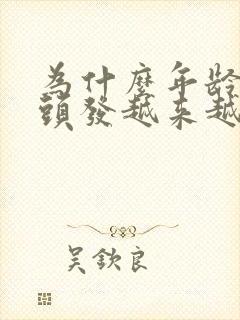 為什麼年齡
頭發越來越
吳欽良